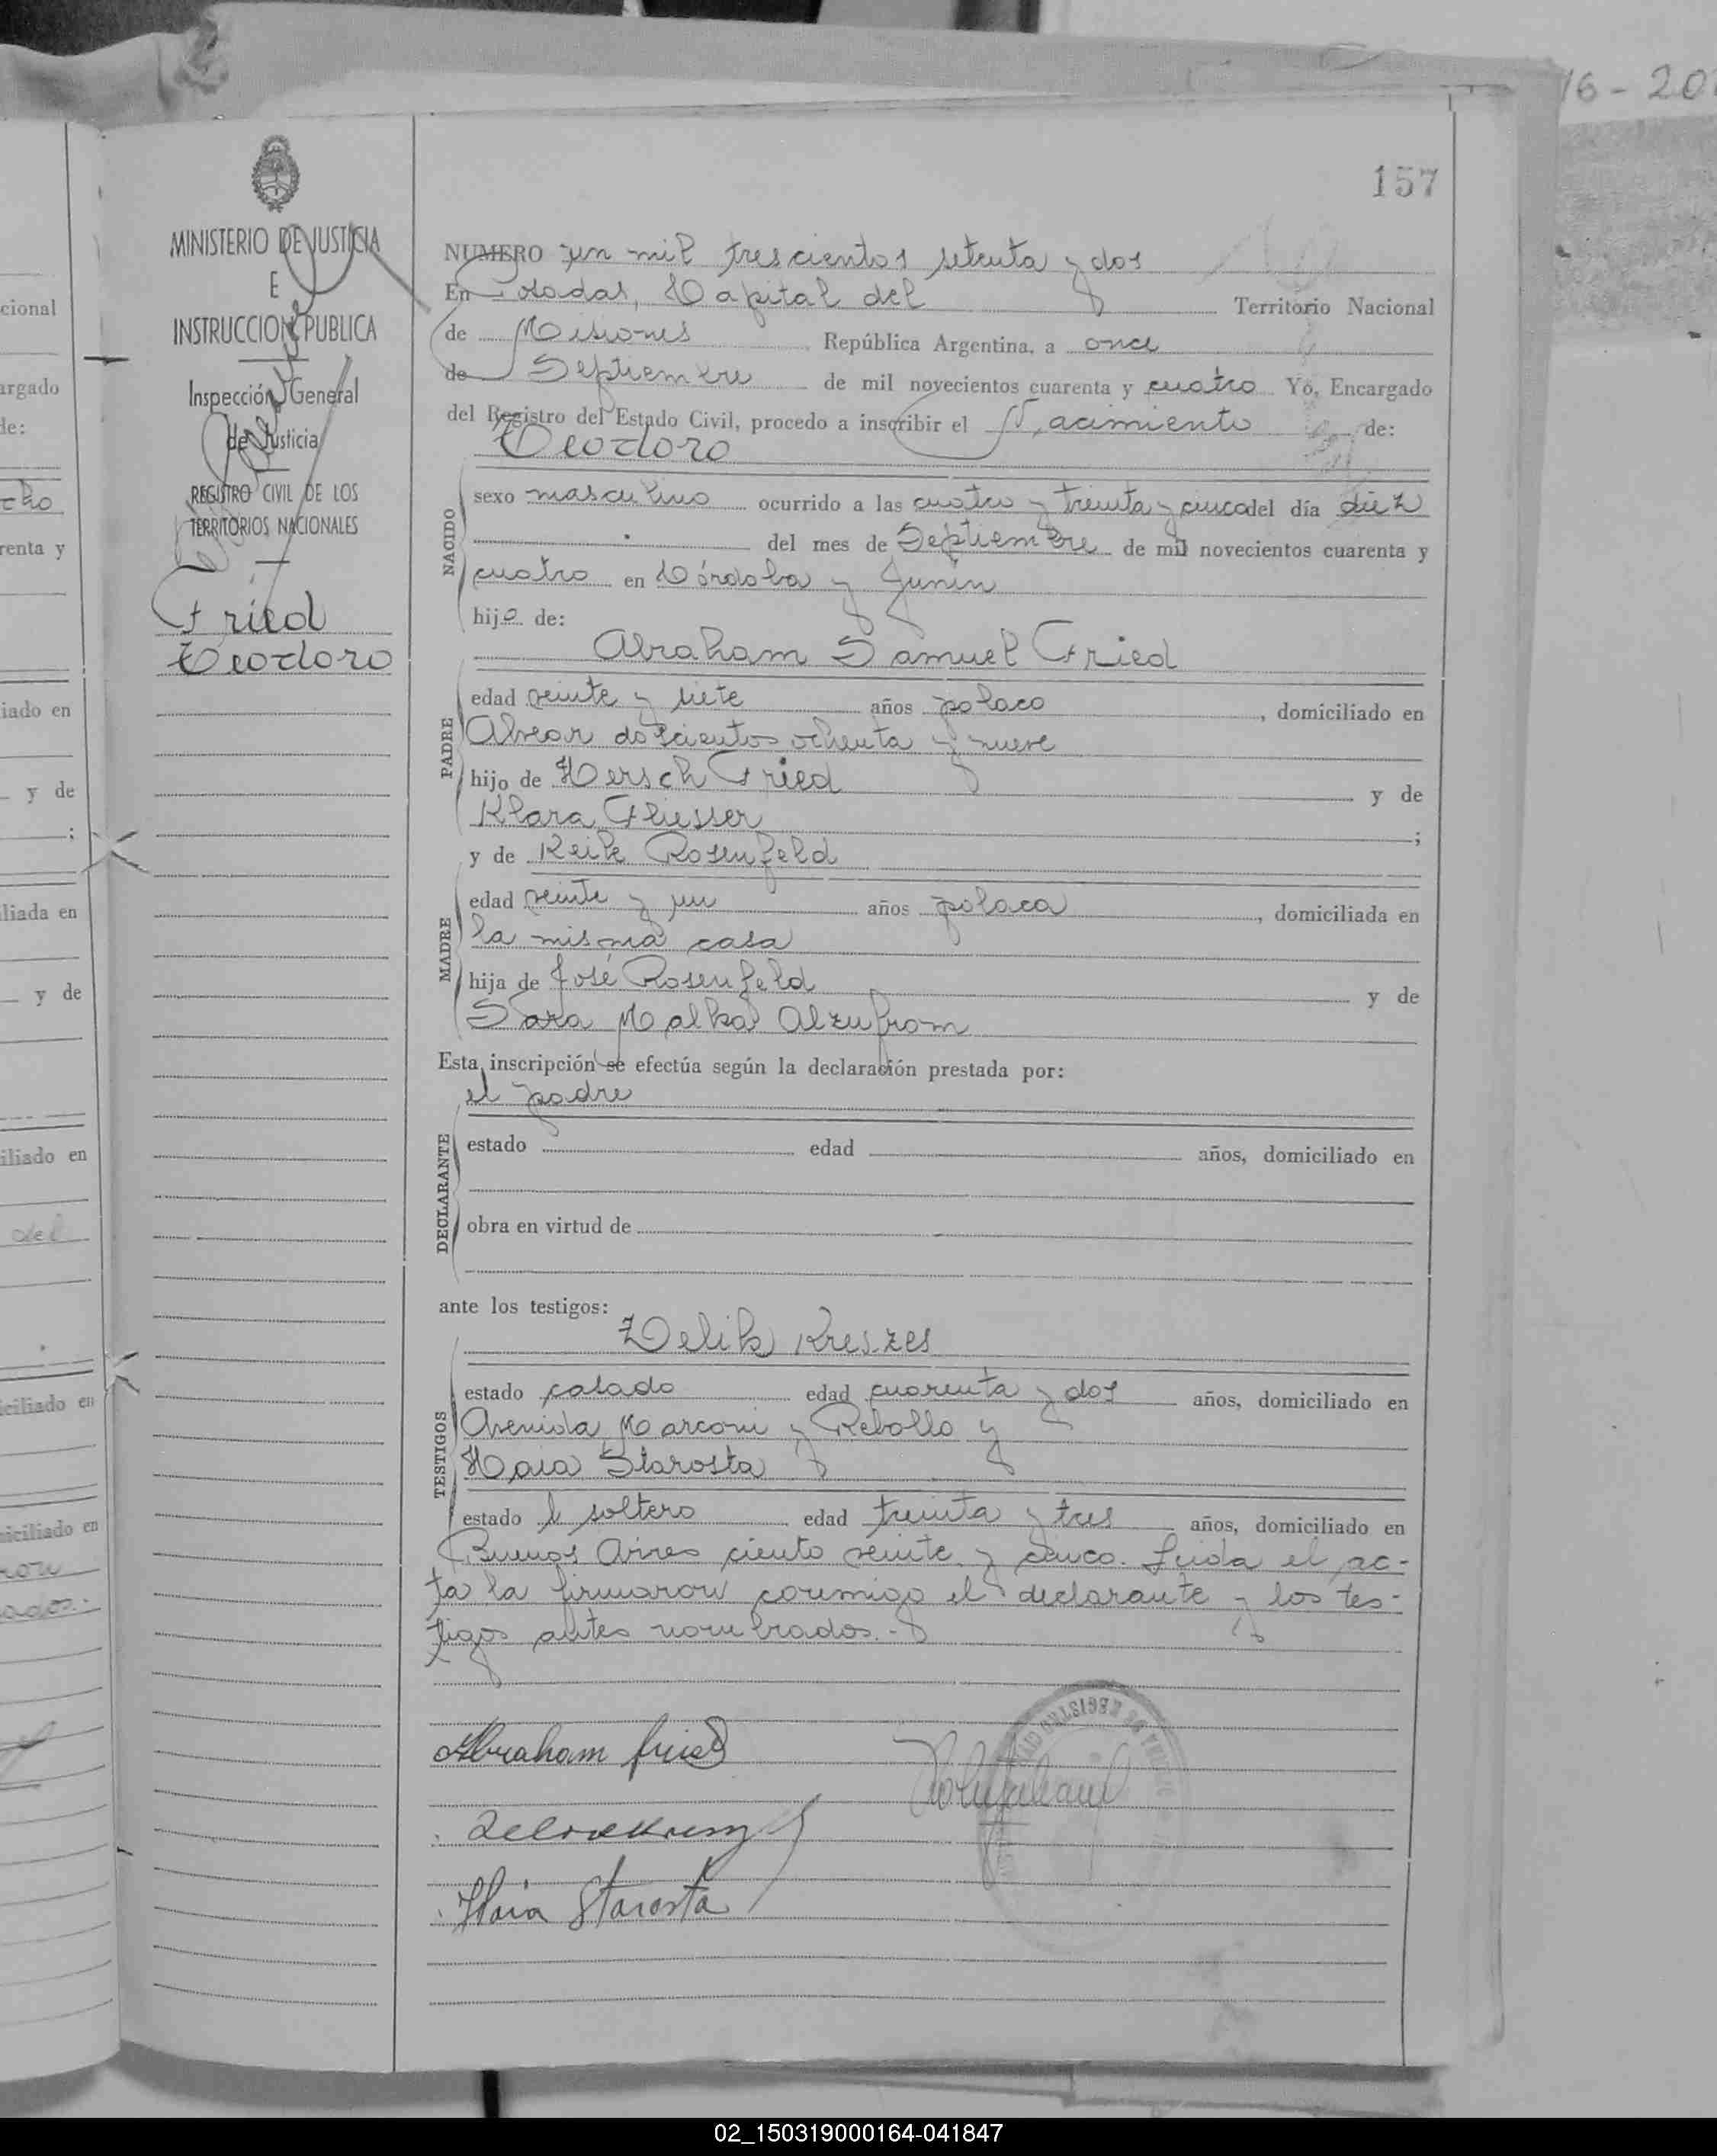 16-20
157
MINISTERIO DE JUSTICIA
E
INSTRUCCION PUBLICA
Inspección General
de Justicia
REGISTRO CIVIL DE LOS
TERRITORIOS NACIONALES
Fried
Teodoro
NUMERO un mil trescientos setenta y dos
En Posadas, Capital del Territorio Nacional
de Misiones República Argentina, a once
de Septiembre de mil novecientos cuarenta y cuatro Yo, Encargado
del Registro del Estado Civil, procedo a inscribir el Nacimiento de:
Teodoro
NACIDO
sexo masculino ocurrido a las cuatro y treinta y cinco del día diez
del mes de Septiembre de mil novecientos cuarenta y
cuatro en Córdoba y Junín
hijo de:
Abraham Samuel Fried
PADRE
edad veinte y siete años polaco, domiciliado en
Alvear doscientos ochenta y nueve
hijo de Hersch Fried y de
Klara Fliesser;
y de Reile Rosenfeld
MADRE
edad veinte y un años polaca, domiciliada en
la misma casa
hija de José Rosenfeld y de
Sara Malka Alzufrom
Esta inscripción se efectúa según la declaración prestada por:
el padre
DECLARANTE
estado edad años, domiciliado en
obra en virtud de
ante los testigos:
Zelik Kreszes
TESTIGOS
estado casado edad cuarenta y dos años, domiciliado en
Avenida Marconi y Rebollo y
Haia Starosta
estado soltero edad treinta y tres años, domiciliado en
Buenos Aires ciento veinte y cinco. Leida el ac-
ta la firmaron conmigo el declarante y los tes-
tigos antes nombrados.-
Abraham fried
Haia Starosta
cional
argado
de:
cho
renta y
iado en
y de
;
liada en
y de
iliado en
del
ciliado en
iciliado en
ados.
02_150319000164-041847